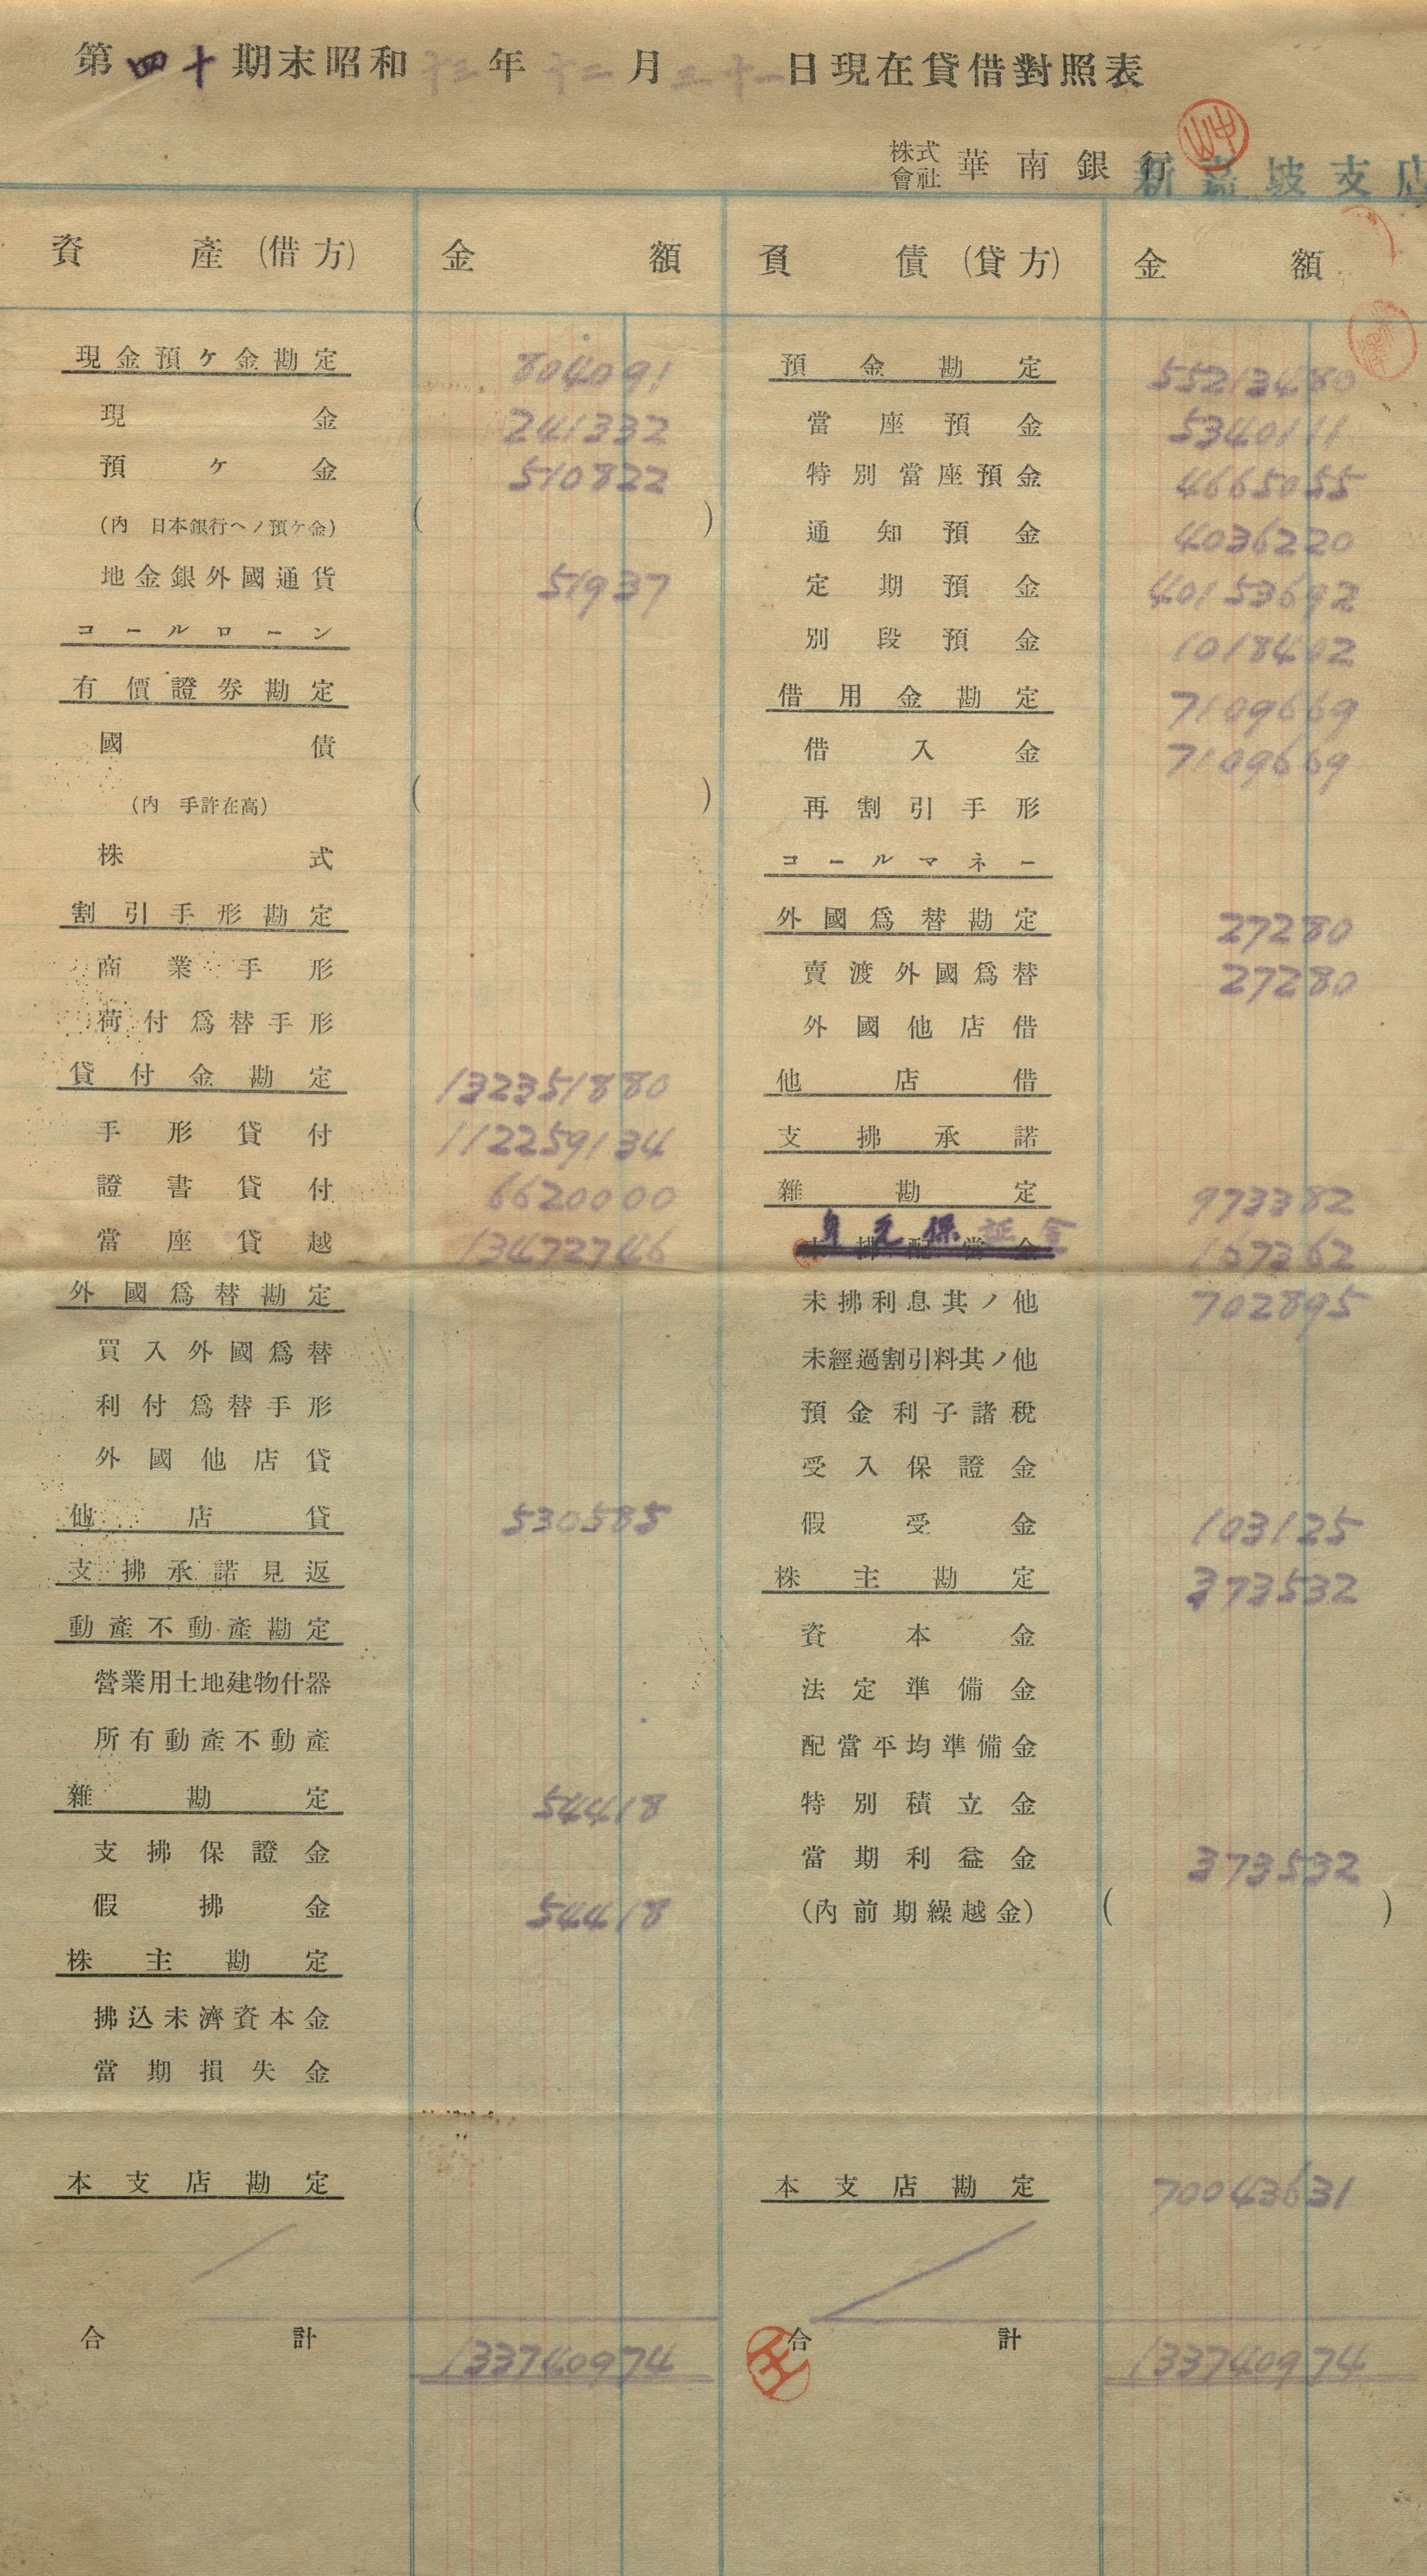 第四十期末昭和十三年十二月三十一日現在貸借對照表
株式會社 華南銀行 新嘉坡支店
資產(借方) 金額 負債(貸方) 金額
現金預ケ金勘定 804091
現金 241332
預ケ金 510822
(內 日本銀行ヘノ預ケ金) ( )
地金銀外國通貨 51937
コールローン
有價證券勘定
國債
(內 手許在高) ( )
株式
割引手形勘定
商業手形
荷付爲替手形
貸付金勘定 132351880
手形貸付 112259134
證書貸付 6620000
當座貸越 13472746
外國爲替勘定
買入外國爲替
利付爲替手形
外國他店貸
他店貸 530585
支拂承諾見返
動產不動產勘定
營業用土地建物什器
所有動產不動產
雜勘定 54418
支拂保證金
假拂金 54418
株主勘定
拂込未濟資本金
當期損失金
本支店勘定
合計 133740974
預金勘定 55213480
當座預金 5340111
特別當座預金 4665055
通知預金 4036220
定期預金 40153692
別段預金 1018402
借用金勘定 7109669
借入金 7109669
再割引手形
コールマネー
外國爲替勘定 27280
賣渡外國爲替 27280
外國他店借
他店借
支拂承諾
雜勘定 973382
身元保証金
未拂配當金 167362
未拂利息其ノ他 702895
未經過割引料其ノ他
預金利子諸稅
受入保證金
假受金 103125
株主勘定 373532
資本金
法定準備金
配當平均準備金
特別積立金
當期利益金 373532
(內前期繰越金) ( )
本支店勘定 70043631
合計 133740974